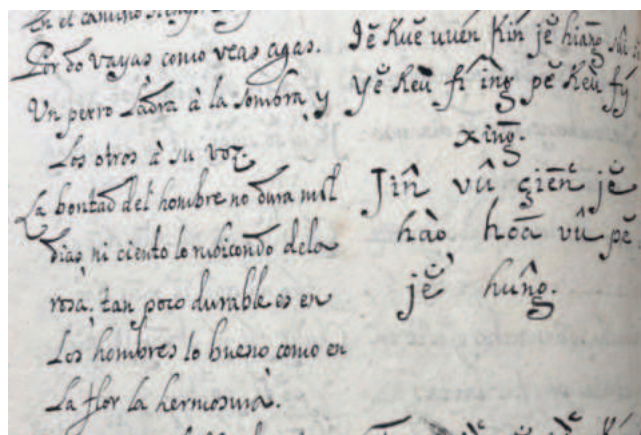 En el camino
Por do vayas como veas agas.
Un perro Ladra à la Sombra, y
Los otros à su voz.
La bontad del hombre no dura mil
dias ni ciento lo rubicondo dela
rosa, tan poco durable es en
Los hombres lo bueno como en
La flor la hermosura.
Jĕ Kuĕ uuén Kín jĕ hiāng
yĕ Keù fí îng pĕ Keù fý
xīng.
Jîn vû çiēn jĕ
hào hoā vû pĕ
jĕ hûng.